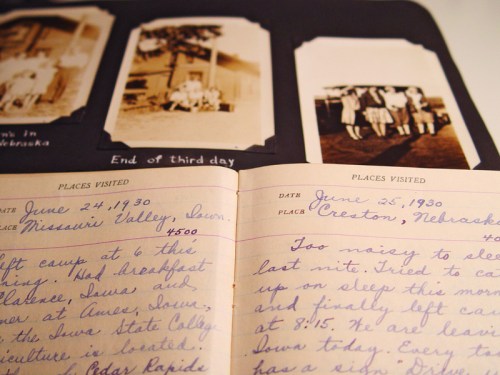 n's in
Nebraska
End of third day
PLACES VISITED
DATE June 24, 1930
PLACE Missouri Valley, Iowa.
4500
left camp at 6 this
ning. Had breakfast
Clarence, Iowa and
ner at Ames, Iowa,
the Iowa State College
riculture is located.
Cedar Rapids
PLACES VISITED
DATE June 25, 1930
PLACE Creston, Nebraska
Too noisy to slee
last nite. Tried to ca
up on sleep this morn
and finally left cam
at 8:15. We are leav
Iowa today. Every to
has a sign "Drive